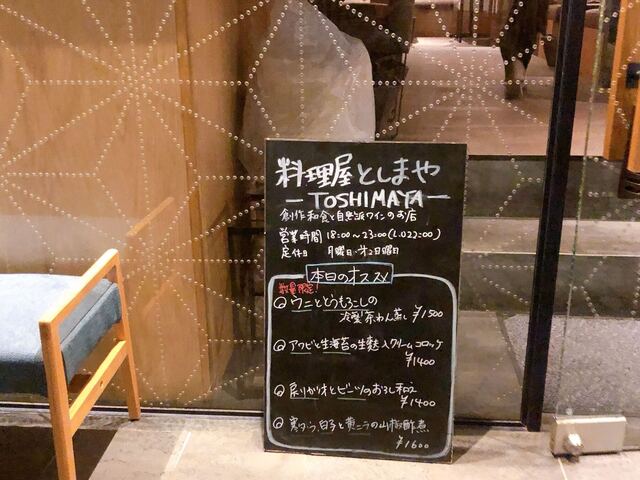 料理屋としまや
－TOSHIMAYA－
創作和食と自然派ワインのお店
営業時間 18:00～23:00(L.O22:00)
定休日 月曜日・第2日曜日
本日のオススメ
数量限定！
ウニととうもろこしの
冷製茶わん蒸し ¥1500
アワビと生海苔の生麩入クリームコロッケ
¥1400
戻りガツオとビーツのおろし和え
¥1400
白子と黄ニラの山椒酢煮
¥1600